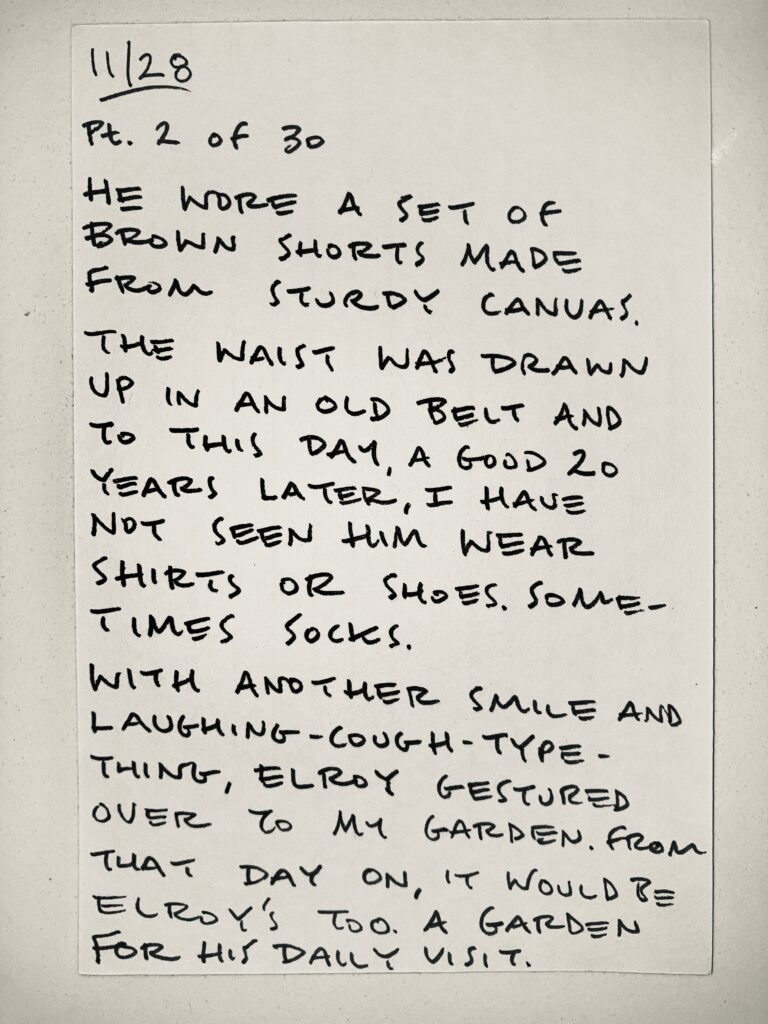 11/28
Pt. 2 of 30
HE WORE A SET OF
BROWN SHORTS MADE
FROM STURDY CANVAS.
THE WAIST WAS DRAWN
UP IN AN OLD BELT AND
TO THIS DAY, A GOOD 20
YEARS LATER, I HAVE
NOT SEEN HIM WEAR
SHIRTS OR SHOES. SOME-
TIMES SOCKS.
WITH ANOTHER SMILE AND
LAUGHING-COUGH-TYPE-
THING, ELROY GESTURED
OVER TO MY GARDEN. FROM
THAT DAY ON, IT WOULD BE
ELROY'S TOO. A GARDEN
FOR HIS DAILY VISIT.